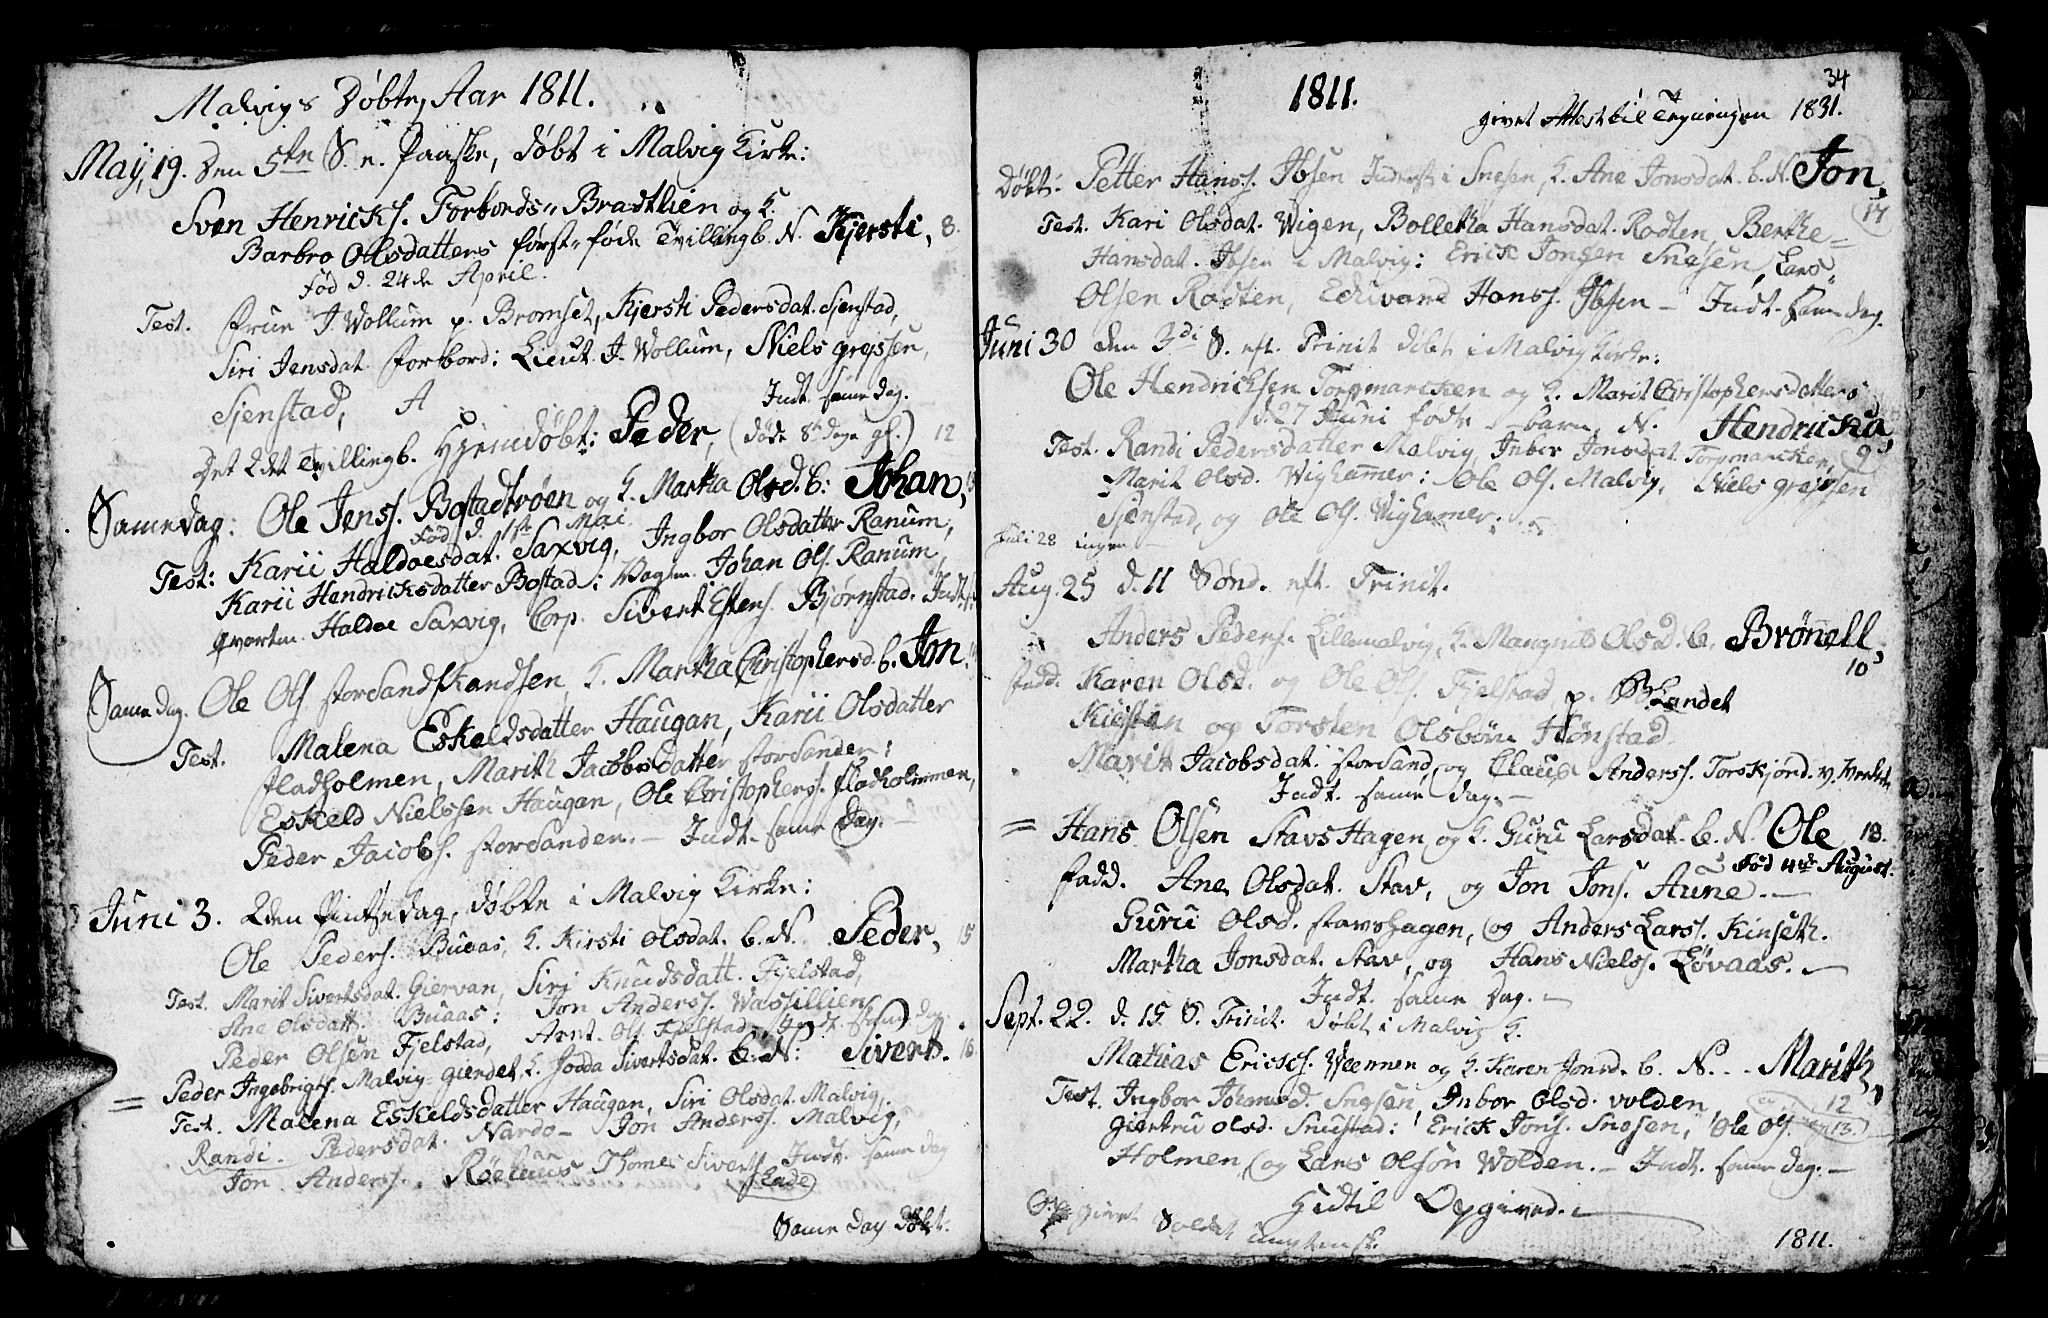 Malvigs Døbte, Aar 1811.
May, 19. Den 5te S. e. Paaske, døbt i Malvig Kirke:
Sven Henricks. Forbords- Brattlien og H.
Barbro Olsdatters først-føde Tvillingb. N. Kjersti, 8.
Fød d. 24de April.
Test. Frue J. Wollum p. Bromset, Kjersti Pedersdat. Sjenstad,
Siri Jensdat. Forbord: Lieut. J. Wollum, Niels Gregssen
Sjenstad, Indt. same dag.
Det 2det Tvillingb. Hjemdøbt: Peder, (døde 8t dage gl.) 12
Same dag: Ole Jenss. Bostadtrøen og H. Martha Olsd. b: Johan, 13
Fød d. 1ste Mai
Test: Karii Haldoesdat. Saxvig, Ingbor Olsdatter Ranum,
Karii Hendricksdatter Bostad: Johan Ols. Ranum
Qvartm. Haldoe Saxvig, Corp. Sivert Estens. Bjørnstad. Indt.
Same dag. Ole Ols. Storsand H. Martha Christophersd. b. Jon
Test. Malena Eskeldsdatter Haugan, Karii Olsdatter
Fladholmen, Marith Jacobsdatter Storsanden:
Eskield Nielssen Haugan, Ole Christophers. Fladholmmen,
Peder Jacobs. Storsanden. — Indt. same Dag. —
Juni 3. 2den Pintsedag, døbte i Malvig Kirke:
Ole Peders. Buaas, H. Kirsti Olsdat. b. N. Peder, 15
Test. Marit Sivertsdat. Giervan, Siri Knudsdatt. Fjelstad,
Ane Olsdatt. Buaas: Jon Anderss. Wassillien
Peder Olsen Fjelstad, Arnt Ols. Fjelstad. Indt. same dag.
= Peder Ingebrigts. Malvig-gierdet, H. Jodda Sivertsdat. b. N: Sivert. 16
Test. Malena Eskeldsdatter Haugan, Siri Olsdat. Malvig.
Randi Pedersdat. Nardo — Jon Anderss. Malvig,
Jon Anderss. Thomes Siverts. Indt. same dag
Lade
Same dag døbt.
34
1811.
givet Attest til Tegningen 1831.
Døbt: Petter Hanss. Ibsen Inderst i Snesen, H. Ane Jonsdat. b. N. Jon,
17
Test. Kari Olsdat. Wigen, Bolletha Hansdat. Rodten, Berthe-
Hansdat. Ibsen i Malvig: Erick Jonsen Snesen, Lars
Olsen Rodten, Eduvard Hanss. Ibsen — Indt. same dag.
Juni 30 den 3di S. eft. Trinit døbt i Malvig Kirke:
Ole Hendricksen Torpmarcken og H. Marit Christophersdatters
d. 27 Juni fødte barn N. Hendricka,
9
Test. Randi Pedersdatter Malvig, Inbor Jonsdat. Torpmarcken,
Marit Olsd. Wighammer: Ole Ols. Malvig, Niels Gregssen
Sjenstad, og Ole Ols. Wighamer.
Juli 28 ingen —
Aug. 25 d. 11 Sønd. eft. Trinit.
Anders Peders. Lillemalvig, H. Mangnild Olsd. b. Brønell,
10
Fadd. Karen Olsd. og Ole Ols. Fjelstad, p. Landet
Kiesten og Torsten Olsbørn Hønstad.
Marit Jacobsdat. Storsand, og Claus Anderss. Torskjønd. v. Værket
Indt. same dag. —
= Hans Olsen Stavs Hagen og H. Guru Larsdat. b. N. Ole 18.
Fød 4de August.
Fadd. Ane Olsdat. Stav, og Jon Jons. Aune. —
Guru Olsd. Stavshagen, og Anders Larss. Kinseth.
Martha Jonsdat. Stav, og Hans Nielss. Løvaas. —
Indt. same Dag. —
Sept. 22. d. 15 S. Trinit. døbt i Malvig K.
Mathias Ericks. Weernen og H. Karen Jonsd. b. N. Marith,
12
13.
Test. Ingbor Johansd. Snesen, Inbor Olsd. Volden
Giertru Olsd. Snustad: Erick Jons. Snesen, Ole Ols.
Holmen, og Lars Olsøn Wolden. — Indt. same dag. —
Hidtil Opgived. —
1811.